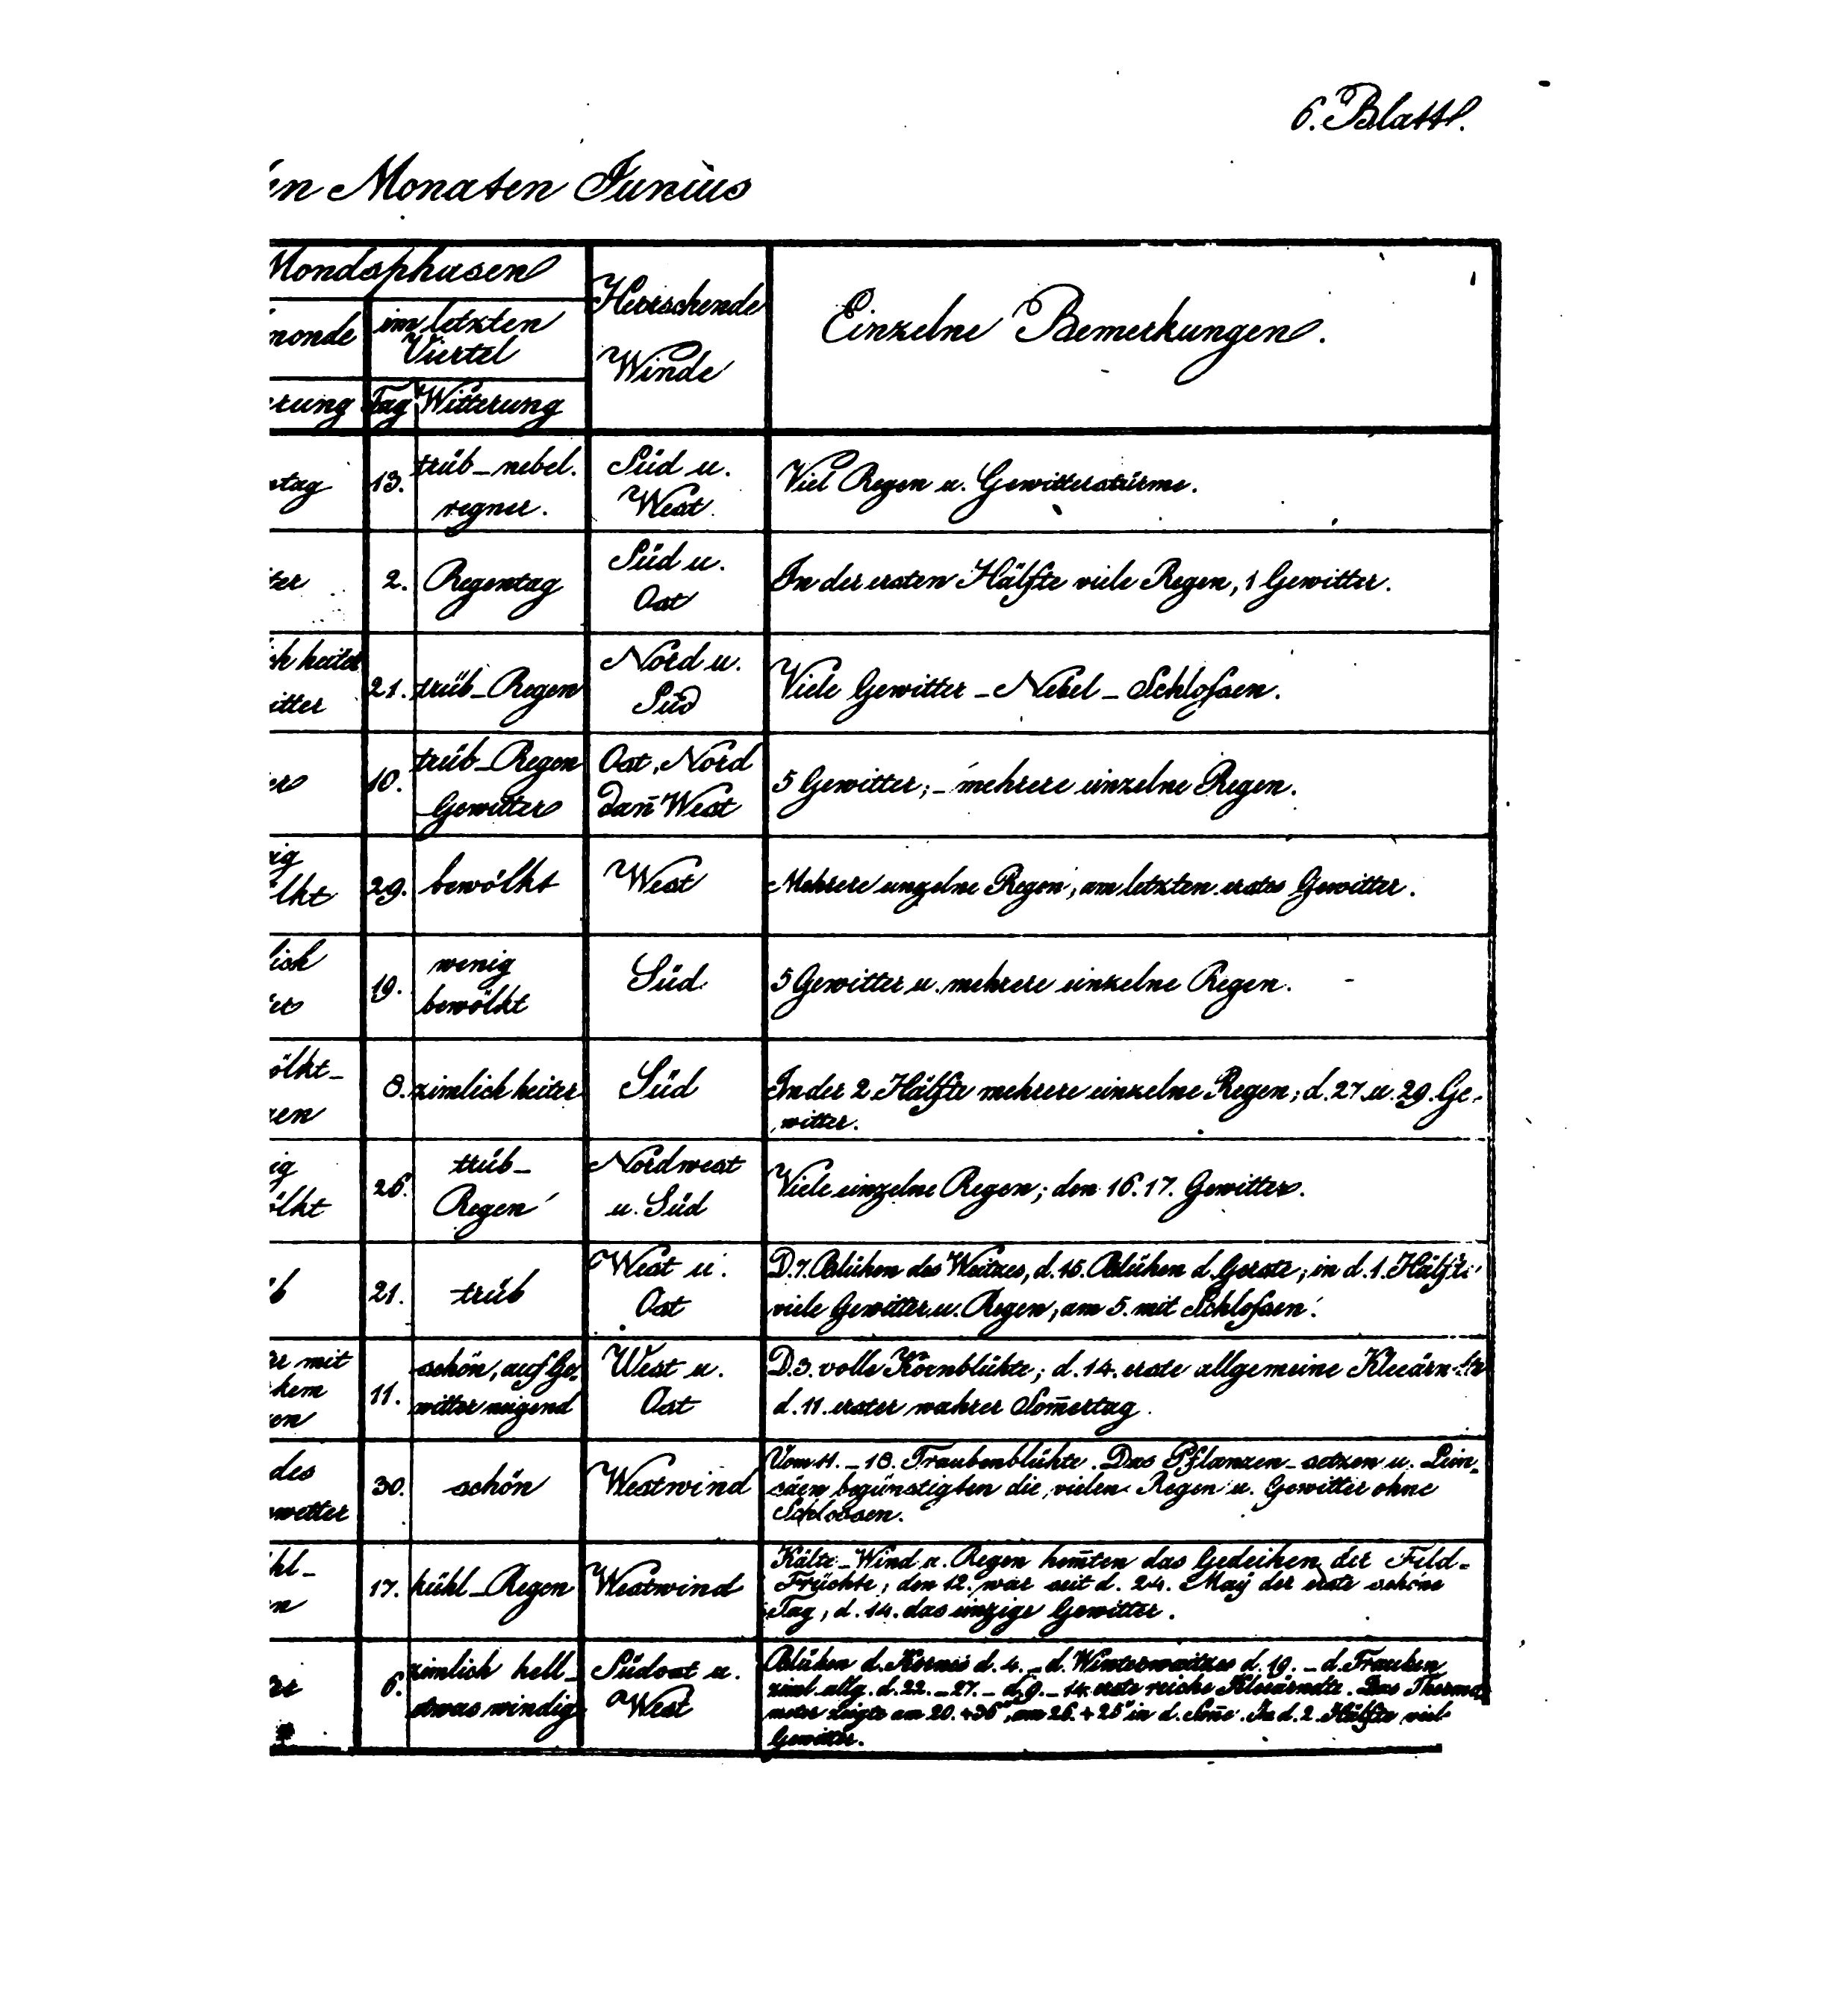 6. Blatt.
en Monaten Junius
Mondsphasen
monde
im letzten
Viertel
Herrschende
Winde
Einzelne Bemerkungen.
erung Tag Witterung
ntag 13. trüb_nebel.
regner.
Süd u.
West
Viel Regen u. Gewitterstürme.
ter 2. Regentag
Süd u.
Ost
In der ersten Hälfte viele Regen, 1 Gewitter.
ch heiter
itter
21. trüb_Regen
Nord u.
Süd
Viele Gewitter_Nebel_Schloſsen.
er 10. trüb_Regen
Gewitter
Ost, Nord
dan̄ West
5 Gewitter;_mehrere einzelne Regen.
ig
ölkt
29. bewölkt
West
Mehrere einzelne Regen, am letzten erstes Gewitter.
lich
er
19. wenig
bewölkt
Süd
5 Gewitter u. mehrere einzelne Regen.
ölkt_
en
8. zimlich heiter
Süd
In der 2 Hälfte mehrere einzelne Regen; d. 27. u. 29. Ge-
witter.
ig
ölkt
26. trüb_
Regen
Nordwest
u. Süd
Viele einzelne Regen; den 16. 17. Gewitter.
b 21. trüb
West u.
Ost
D. 7. Blühen des Weitzes, d. 15. Blühen d. Gerste; in d. 1. Hälfte
viele Gewitter u. Regen, am 5. mit Schloſsen.
mit
kem
en
11. schön, auf Ge-
witter neigend
West u.
Ost
D. 3. volle Kornblühte; d. 14. erste allgemeine Kleeärn
d. 11. erster wahrer Som̄ertag.
des
wetter
30. schön
Westwind
Vom 11._18. Traubenblühte. Das Pflanzen_setzen u. Lein-
säen begünstigten die vielen Regen u. Gewitter ohne
Schlossen.
hl_
n
17. kühl_Regen
Westwind
Kälte_Wind u. Regen hem̄ten das Gedeihen der Feld=
Früchte; den 12. war seit d. 24. Maÿ der erste schöne
Tag; d. 14. das einzige Gewitter.
6. zimlich hell_
etwas windig
Südost u.
West
Blühen d. Kornes d. 4._d. Winterwaitzes d. 19._d. Trauben
ziml. allg. d. 22._27._d. 9._14. erste reiche Kleeärndte. Das Thermo
meter zeigte am 20. +36°, am 26. +25° in d. Son̄e. In d. 2. Hälfte viel
Gewitter.